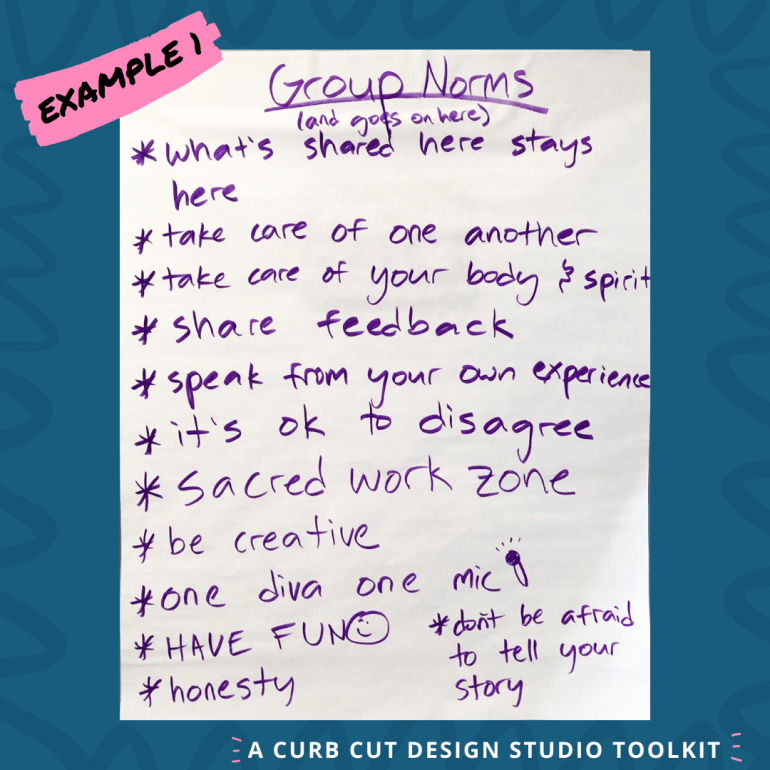 EXAMPLE 1
Group Norms
(and goes on here)
* what's shared here stays
here
* take care of one another
* take care of your body & spirit
* share feedback
* speak from your own experience
* it's ok to disagree
* sacred work zone
* be creative
* one diva one mic
* HAVE FUN
* honesty
* don't be afraid
to tell your
story
A CURB CUT DESIGN STUDIO TOOLKIT